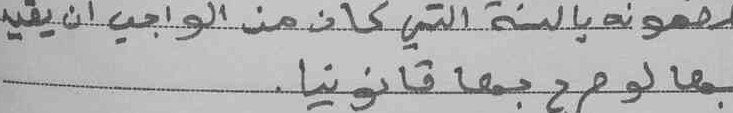 مضمونه بالسنة التي كان من الواجب ان يقيد
بها لو صرح بها قانونيا.